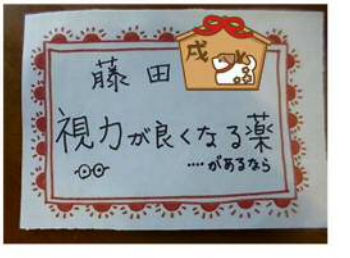 戌
藤田
視力が良くなる薬
‥‥があるなら